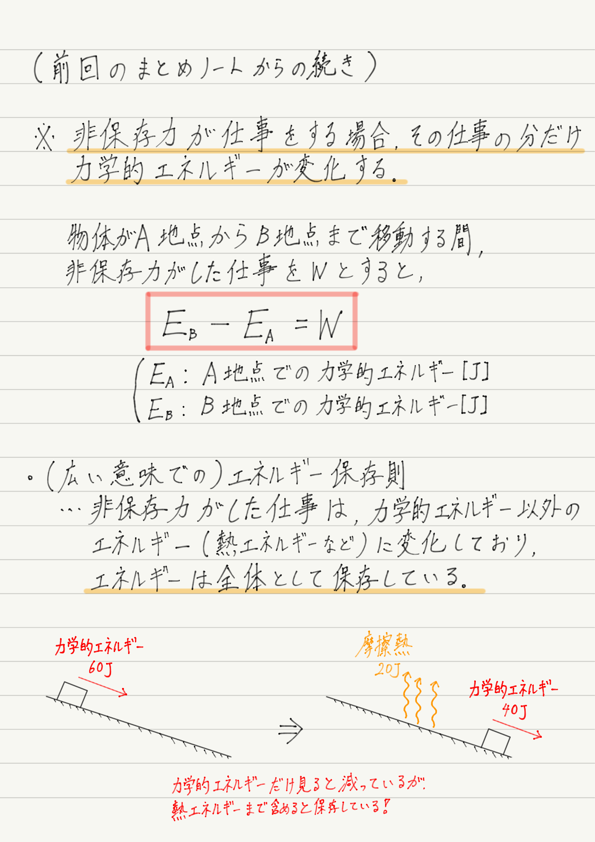 (前回のまとめノートからの続き)
※ 非保存力が仕事をする場合,その仕事の分だけ
力学的エネルギーが変化する.
物体がA地点からB地点まで移動する間,
非保存力がした仕事をWとすると,
E_B − E_A = W
E_A : A地点での力学的エネルギー[J]
E_B : B地点での力学的エネルギー[J]
・(広い意味での)エネルギー保存則
… 非保存力がした仕事は,力学的エネルギー以外の
エネルギー(熱エネルギーなど)に変化しており,
エネルギーは全体として保存している.
力学的エネルギー
60J
⇒
摩擦熱
20J
力学的エネルギー
40J
力学的エネルギーだけ見ると減っているが,
熱エネルギーまで含めると保存している!